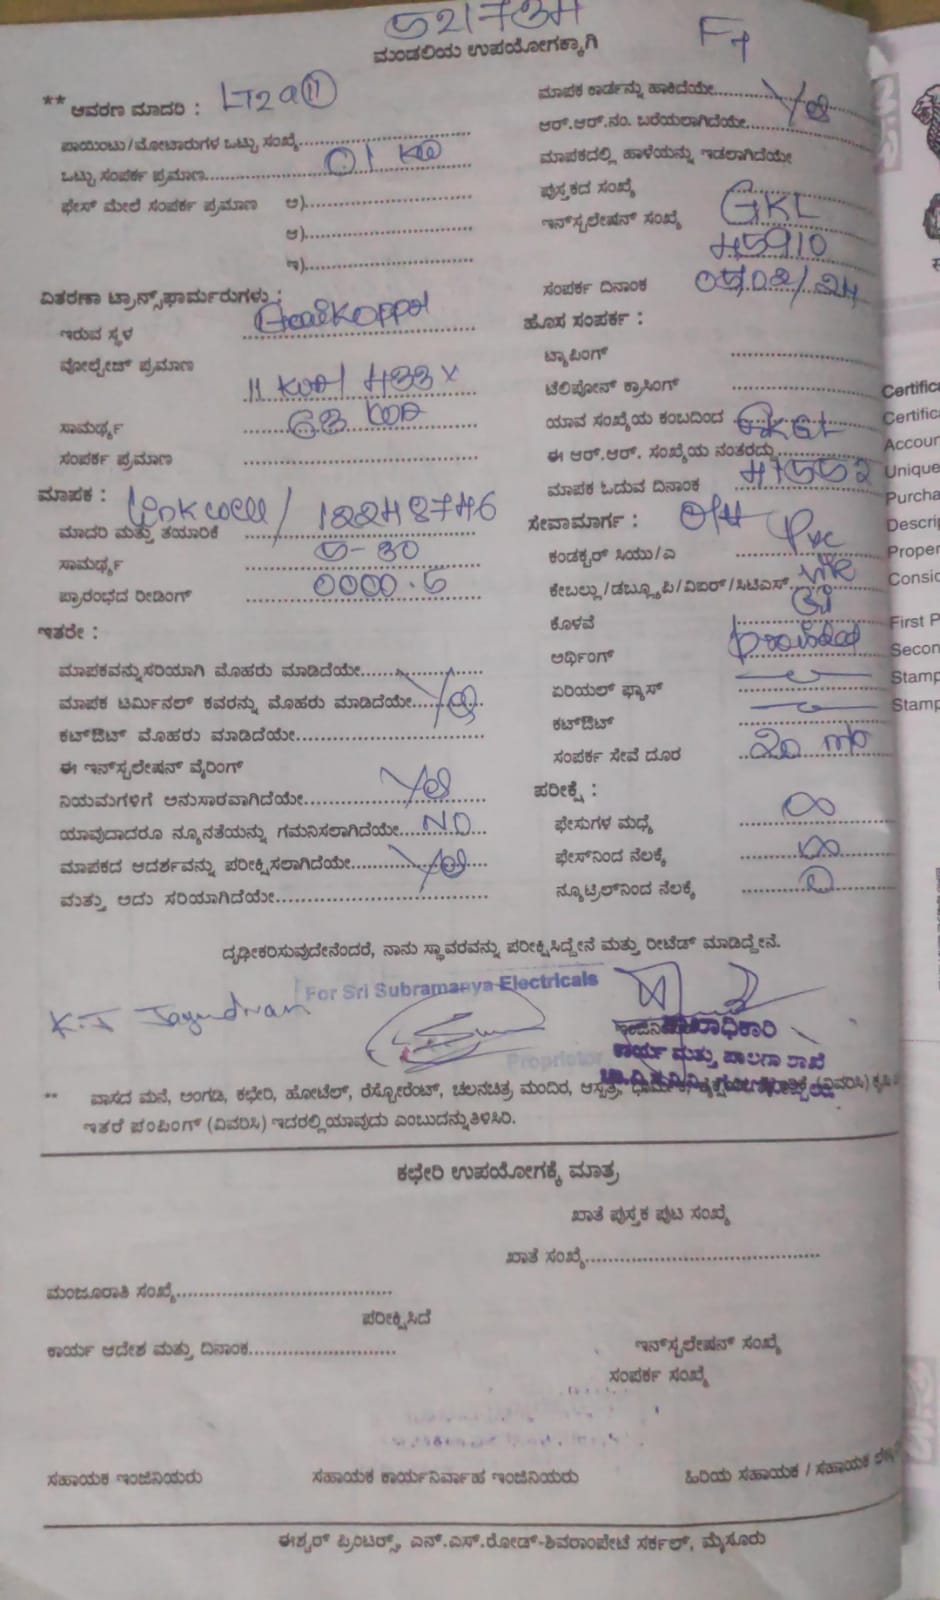 521734
F7
ಮಂಡಲಿಯ ಉಪಯೋಗಕ್ಕಾಗಿ
** ಆವರಣ ಮಾದರಿ : LT2a(11)
ಪಾಯಿಂಟು/ಮೋಟಾರುಗಳ ಒಟ್ಟು ಸಂಖ್ಯೆ
ಒಟ್ಟು ಸಂಪರ್ಕ ಪ್ರಮಾಣ 01 KW
ಫೇಸ್ ಮೇಲೆ ಸಂಪರ್ಕ ಪ್ರಮಾಣ ಅ)
ಆ)
ಇ)
ವಿತರಣಾ ಟ್ರಾನ್ಸ್‌ಫಾರ್ಮರುಗಳು :
ಇರುವ ಸ್ಥಳ
ವೋಲ್ಟೇಜ್ ಪ್ರಮಾಣ
ಸಾಮರ್ಥ್ಯ 63
ಸಂಪರ್ಕ ಪ್ರಮಾಣ
ಮಾಪಕ : Linkwell / 12248746
ಮಾದರಿ ಮತ್ತು ತಯಾರಿಕೆ
ಸಾಮರ್ಥ್ಯ 5-30
ಪ್ರಾರಂಭದ ರೀಡಿಂಗ್ 0000.5
ಇತರೇ :
ಮಾಪಕವನ್ನು ಸರಿಯಾಗಿ ಮೊಹರು ಮಾಡಿದೆಯೇ
ಮಾಪಕ ಟರ್ಮಿನಲ್ ಕವರನ್ನು ಮೊಹರು ಮಾಡಿದೆಯೇ Yes
ಕಟ್‌ಔಟ್ ಮೊಹರು ಮಾಡಿದೆಯೇ
ಈ ಇನ್‌ಸ್ಟಲೇಷನ್ ವೈರಿಂಗ್
ನಿಯಮಗಳಿಗೆ ಅನುಸಾರವಾಗಿದೆಯೇ Yes
ಯಾವುದಾದರೂ ನ್ಯೂನತೆಯನ್ನು ಗಮನಿಸಲಾಗಿದೆಯೇ NO
ಮಾಪಕದ ಆದರ್ಶವನ್ನು ಪರೀಕ್ಷಿಸಲಾಗಿದೆಯೇ Yes
ಮತ್ತು ಅದು ಸರಿಯಾಗಿದೆಯೇ
ಮಾಪಕ ಕಾರ್ಡನ್ನು ಹಾಕಿದೆಯೇ Yes
ಆರ್.ಆರ್.ನಂ. ಬರೆಯಲಾಗಿದೆಯೇ
ಮಾಪಕದಲ್ಲಿ ಹಾಳೆಯನ್ನು ಇಡಲಾಗಿದೆಯೇ
ಪುಸ್ತಕದ ಸಂಖ್ಯೆ
ಇನ್‌ಸ್ಟಲೇಷನ್ ಸಂಖ್ಯೆ GKL
45910
ಸಂಪರ್ಕ ದಿನಾಂಕ 05/02/24
ಹೊಸ ಸಂಪರ್ಕ :
ಟ್ಯಾಪಿಂಗ್
ಟೆಲಿಫೋನ್ ಕ್ರಾಸಿಂಗ್
ಯಾವ ಸಂಖ್ಯೆಯ ಕಂಬದಿಂದ
ಈ ಆರ್.ಆರ್. ಸಂಖ್ಯೆಯ ನಂತರದ್ದು
ಮಾಪಕ ಓದುವ ದಿನಾಂಕ 47552
ಸೇವಾಮಾರ್ಗ : O/H
ಕಂಡಕ್ಟರ್ ಸಿಯು/ಎ Pvc
ಕೇಬಲ್ಲು/ಡಬ್ಲ್ಯೂಪಿ/ವಿಐರ್/ಸಿಟಿಎಸ್
ಕೊಳವೆ GI
ಅರ್ಥಿಂಗ್ provided
ಏರಿಯಲ್ ಫ್ಯೂಸ್
ಕಟ್‌ಔಟ್
ಸಂಪರ್ಕ ಸೇವೆ ದೂರ 20 mtr
ಪರೀಕ್ಷೆ :
ಫೇಸುಗಳ ಮಧ್ಯೆ ∞
ಫೇಸ್‌ನಿಂದ ನೆಲಕ್ಕೆ ∞
ನ್ಯೂಟ್ರಲ್‌ನಿಂದ ನೆಲಕ್ಕೆ
ದೃಢೀಕರಿಸುವುದೇನೆಂದರೆ, ನಾನು ಸ್ಥಾವರವನ್ನು ಪರೀಕ್ಷಿಸಿದ್ದೇನೆ ಮತ್ತು ರೀಟೆಡ್ ಮಾಡಿದ್ದೇನೆ.
For Sri Subramanya Electricals
K.J Jayendran
Proprietor
ಕಾರ್ಯ ಮತ್ತು ಪಾಲನಾ ಶಾಖೆ
** ವಾಸದ ಮನೆ, ಅಂಗಡಿ, ಕಛೇರಿ, ಹೋಟೆಲ್, ರೆಸ್ಟೋರೆಂಟ್, ಚಲನಚಿತ್ರ ಮಂದಿರ, ಆಸ್ಪತ್ರೆ,
ಇತರೆ ಪಂಪಿಂಗ್ (ವಿವರಿಸಿ) ಇದರಲ್ಲಿ ಯಾವುದು ಎಂಬುದನ್ನು ತಿಳಿಸಿರಿ.
ಕಛೇರಿ ಉಪಯೋಗಕ್ಕೆ ಮಾತ್ರ
ಖಾತೆ ಪುಸ್ತಕ ಪುಟ ಸಂಖ್ಯೆ
ಖಾತೆ ಸಂಖ್ಯೆ
ಮಂಜೂರಾತಿ ಸಂಖ್ಯೆ
ಪರೀಕ್ಷಿಸಿದೆ
ಕಾರ್ಯ ಆದೇಶ ಮತ್ತು ದಿನಾಂಕ
ಇನ್‌ಸ್ಟಲೇಷನ್ ಸಂಖ್ಯೆ
ಸಂಪರ್ಕ ಸಂಖ್ಯೆ
ಸಹಾಯಕ ಇಂಜಿನಿಯರು
ಸಹಾಯಕ ಕಾರ್ಯನಿರ್ವಾಹ ಇಂಜಿನಿಯರು
ಹಿರಿಯ ಸಹಾಯಕ / ಸಹಾಯಕ
ಈಶ್ವರ್ ಪ್ರಿಂಟರ್ಸ್, ಎನ್.ಎಸ್.ರೋಡ್-ಶಿವರಾಂಪೇಟೆ ಸರ್ಕಲ್, ಮೈಸೂರು
Certifica
Certifica
Accoun
Unique
Purcha
Descrip
Proper
Consid
First P
Secon
Stamp
Stamp